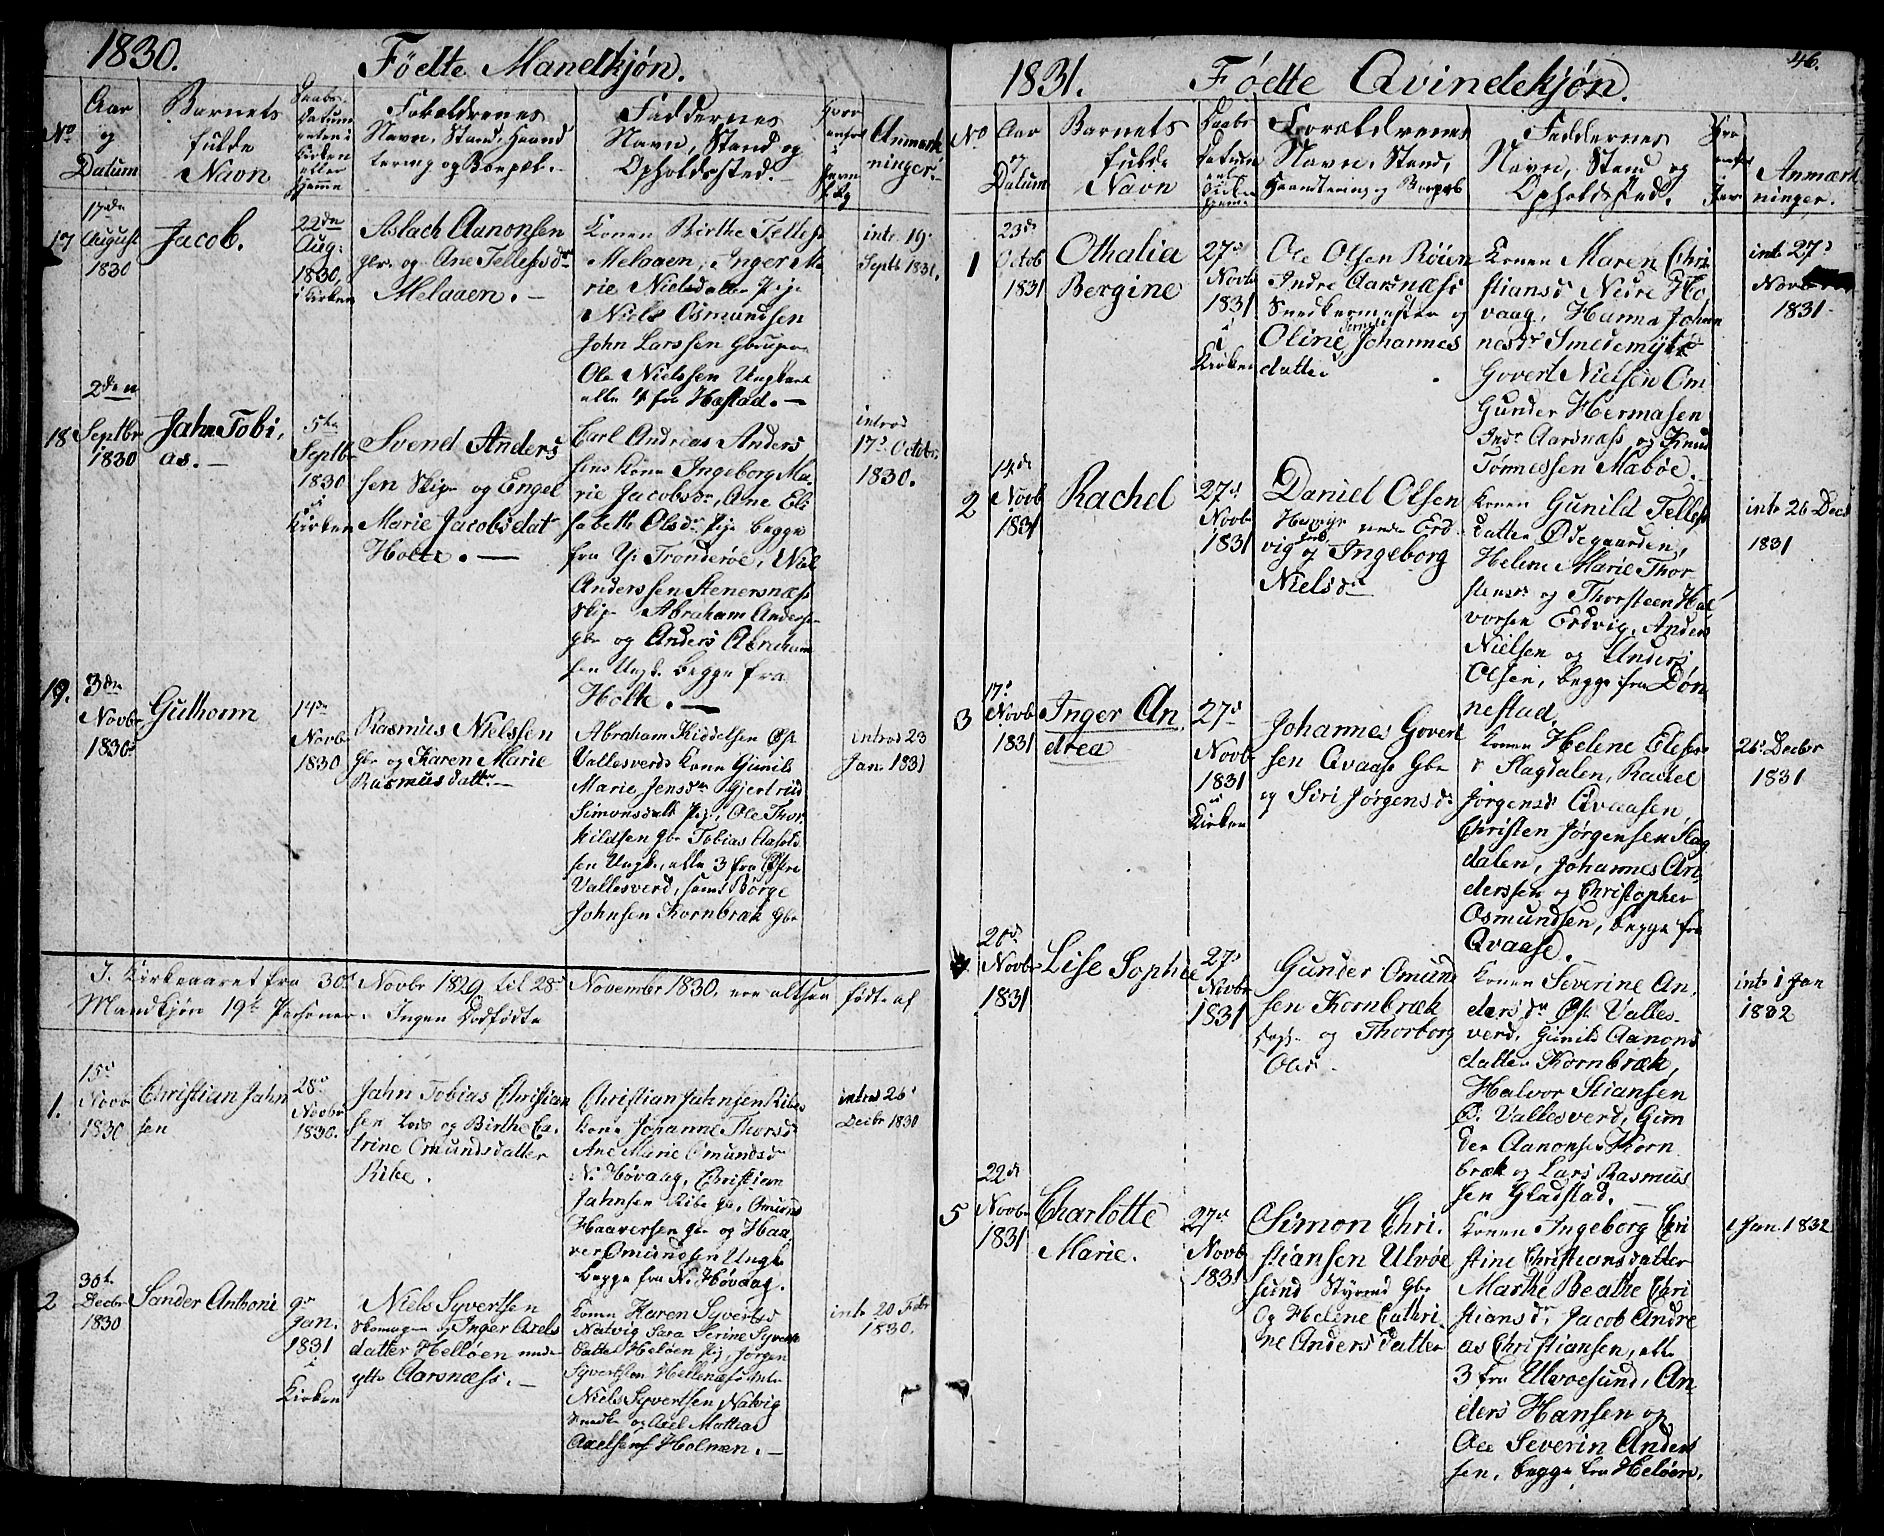 1830.
Födte Mandkjøn.
No
Aar
og
Datum
Barnets
fulde
Navn
Daabs
Datum
enten i
Kirken
eller
hjemme
Navn, Stand, Haand
tering og Boepæl.
Faddernes
Navn, Stand og
Opholdssted.
Anmærk
ninger.
17
17de
August
1830
Jacob.
22de
Aug:
1830,
i Kirken
Aslach Aanonsen
gbr. og Ane Tellefsdr
Melaaen.
Konen Birthe Tellefs
Melaaen, Inger Ma
rie Nielsdatter Pige
Niels Osmundsen
John Larssen
Ole Nielssen Ungkarl
alle 4 fra Hæstad.
intr. 19
Septb 1830.
18
2den
Septbr
1830
Jahn Tobi
as.
5te
Septbr
1830
i
Kirken
Svend Anders
sen Skipr og Engel
Marie Jacobsdat
Holte.
Carl Andreas Anders
sens Kone Ingeborg Ma
rie Jacobsdr, Ane Eli
sabeth Olsdr Pige begge
fra Tronderöe, Niels
Anderssen Stenersnæss
Skipr Abraham Anders
gbr og Anders Abraham
sen Ungk. begge fra
Holte.
introd
17de October
1830.
19.
3de
Novbr
1830
Guthorm
14de
Novbr
1830
Rasmus Nielssen
Gbr og Karen Marie
Rasmusdattr
Abraham Kiddelsen Øst
Vallesverds Kone Gunild
Marie Jensdr Gjertrud
Simonsdatt Pige, Ole Thor
kildsen Gbr Tobias
sen Ungk., alle 3 fra Østre
Vallesverd, samt Børge
Johnsen Kornbræk Gbr
introd 23
Jan. 1831
I Kirkeaaret fra 30d Novbr 1829 til 28d November 1830. ere altsaa födte af
Mandkjön 19 Personer. Ingen Dödfödte
1.
15d
Novbr
1830
Christian Jahn
sen
28d
Novbr
1830.
Jahn Tobias Christian
sen Lods og Birthe Ca
trine Omundsdatter
Ribe.
Christian Jahnsen Ribes
Kone Johanne Thorsdr
Ane Marie Omundsdr
N. Høvaag, Christian
Jahnsen Ribe gbr, Omund
Haaversen gbr og Haa
ver Omundsen Ungk
begge fra N. Høvaag.
introd 26d
Decbr 1830
2
30te
Decbr
1830
Sander Anthoni
9de
Jan.
1831
i
Kirken
Niels Syvertsen
Skomager og Inger Axels
datter Hellöen
Aarsnæss.
Konen Karen Syverts
Natvig Sara Serine Syverts
datter Helöen Pige, Jørgen
Syvertsen
Niels Syvertsen Natvig
og Axel Mathias
Axelsen af Holmen.
intr 20 Febr
1830.
46.
1831.
Fódte Qvindekjøn.
No
Aar
og
Datum
Barnets
fulde
Navn
Daabs
Datum
Forældrenes
Navn, Stand,
Haandtering og Boepæl
Faddernes
Navn, Stand og
Opholdssted.
Anmærk
ninger.
1
23de
Octob
1831
Othalia
Bergine
27d
Novbr
1831
i
Kirken
Ole Olsen Röien
Indre Aarsnæss
Snedkermester og
Oline Johannes
datter
Konen Maren Chri
stiansd Nedre Hö
vaag, Hanna Johan
nesdr Smedemyhr
Govert Nielsen Om
Gunder Hermansen
Indr Aarsnæss og Knud
Tönnessen Maböe.
intr 27d
Novbr
1831
2
14de
Novbr
1831
Rachel
27d
Novbr
1831
Daniel Olsen
vig og Ingeborg
Nielsdr
Konen Gunild Tellefs
datter Ødegaarden,
Helene Marie Thor
stensdr og Thorsteen Hal
vorsen Erdvig, Anders
Nielsen og Anders
Olsen, begge fra Dön
nestad,
intr 26 Decb
1831
3
17d
Novbr
1831
Inger An
drea
27d
Novbr
1831
i
Kirken
Johannes Govert
sen Qvaase Gbr
og Siri Jörgensdr
Konen Helene
Slagdalen, Rachel
Jørgensdr Qvaasen,
Christen Jørgensen Slag
dalen, Johannes An
derssen og Christopher
Osmundsen, begge fra
Qvaase.
26d Decbr
1831
4.
20d
Novbr
1831
Lise Sophie
27d
Novbr
1831
Gunder Omund
sen Kornbræk
og Thorborg
Olsd.
Konen Severine An
dersdr Øst Valles
verd, Gunild Aanons
datter Kornbræk,
Halvor Stiansen
Ø. Vallesverd, Gun
der Aanonsen Korn
bræk og Lars Rasmus
sen Gladstad.
intr 1 Jan
1832
5
22de
Novbr
1831
Charlotte
Marie.
27de
Novbr
1831
Simon Chri
stiansen Ulvöe
sund Styrmd Gbr
og Helene Cathri
ne Andersdatter
Konen Ingeborg Chri
stine Christiansdatter
Marthe Beathe Chri
stiansdr, Jacob Andre
as Christiansen, alle
3 fra Ulvoesund, An
ders Hansen og
Ole Severin Anders
sen, begge fra Helöen,
1 Jan. 1832